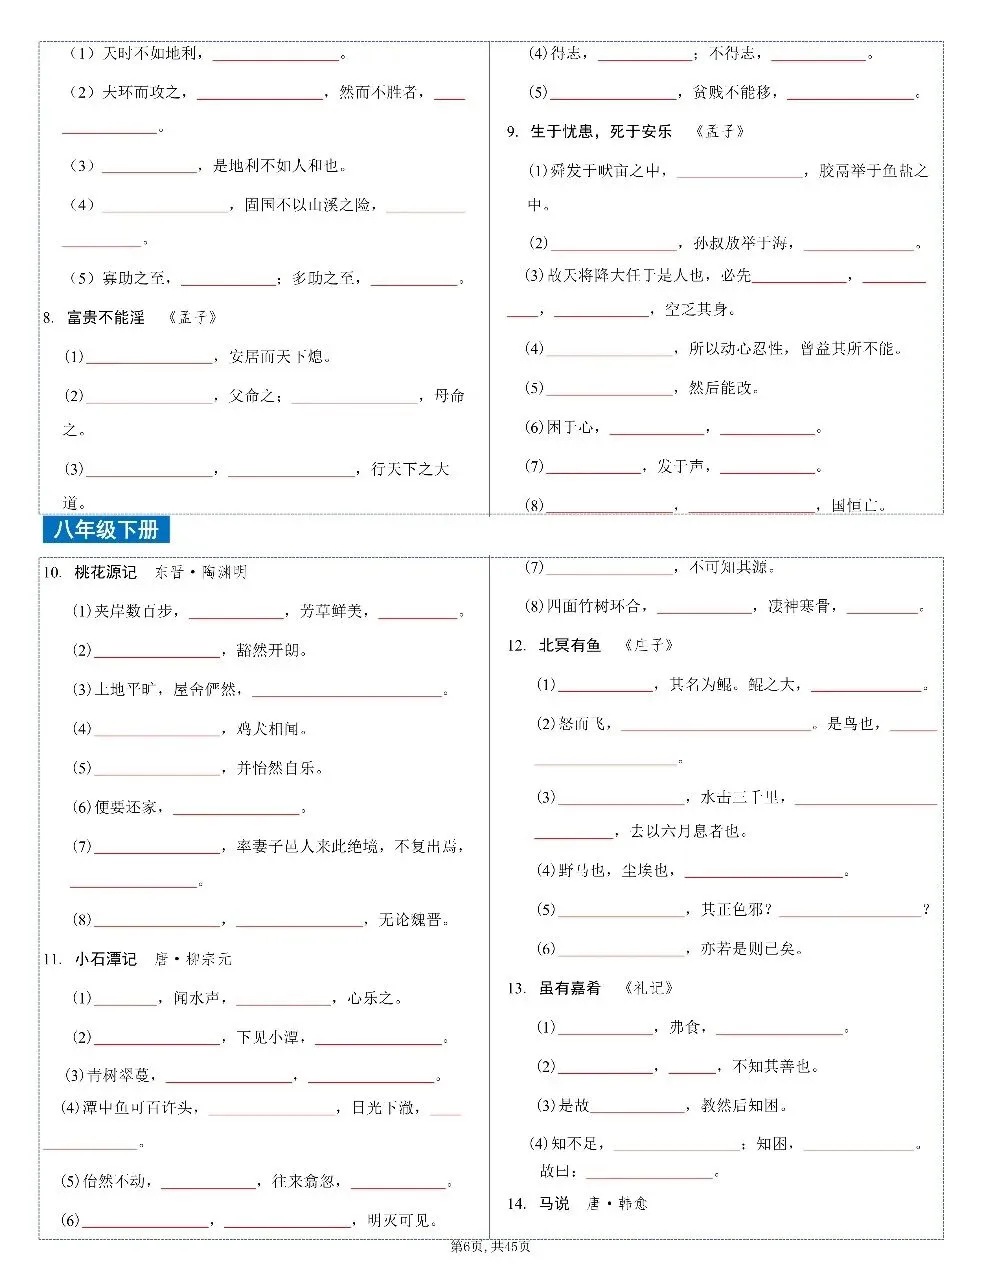 （1）天时不如地利，____________。
（2）夫环而攻之，____________，然而不胜者，____
____________。
（3）____________，是地利不如人和也。
（4）____________，固国不以山溪之险，__________
__________。
（5）寡助之至，____________；多助之至，__________。
8. 富贵不能淫 《孟子》
(1)____________，安居而天下熄。
(2)____________，父命之；____________，母命
之。
(3)____________，____________，行天下之大
道。
(4)得志，____________；不得志，____________。
(5)____________，贫贱不能移，____________。
9. 生于忧患，死于安乐 《孟子》
(1)舜发于畎亩之中，____________，胶鬲举于鱼盐之
中。
(2)____________，孙叔敖举于海，____________。
(3)故天将降大任于是人也，必先____________，________
____，____________，空乏其身。
(4)____________，所以动心忍性，曾益其所不能。
(5)____________，然后能改。
(6)困于心，____________，____________。
(7)____________，发于声，____________。
(8)____________，____________，国恒亡。
八年级下册
10. 桃花源记 东晋·陶渊明
(1)夹岸数百步，____________，芳草鲜美，__________。
(2)____________，豁然开朗。
(3)土地平旷，屋舍俨然，________________________。
(4)____________，鸡犬相闻。
(5)____________，并怡然自乐。
(6)便要还家，____________。
(7)____________，率妻子邑人来此绝境，不复出焉，
____________。
(8)____________，____________，无论魏晋。
11. 小石潭记 唐·柳宗元
(1)________，闻水声，____________，心乐之。
(2)____________，下见小潭，____________。
(3)青树翠蔓，____________，____________。
(4)潭中鱼可百许头，____________，日光下澈，____
____________。
(5)佁然不动，____________，往来翕忽，____________。
(6)____________，____________，明灭可见。
(7)____________，不可知其源。
(8)四面竹树环合，____________，凄神寒骨，________。
12. 北冥有鱼 《庄子》
(1)____________，其名为鲲。鲲之大，____________。
(2)怒而飞，________________________。是鸟也，______
__________________。
(3)____________，水击三千里，__________________
__________，去以六月息者也。
(4)野马也，尘埃也，____________________。
(5)____________，其正色邪？__________________？
(6)____________，亦若是则已矣。
13. 虽有嘉肴 《礼记》
(1)____________，弗食，____________。
(2)____________，______，不知其善也。
(3)是故____________，教然后知困。
(4)知不足，____________；知困，____________。
故曰：____________。
14. 马说 唐·韩愈
第6页,共45页